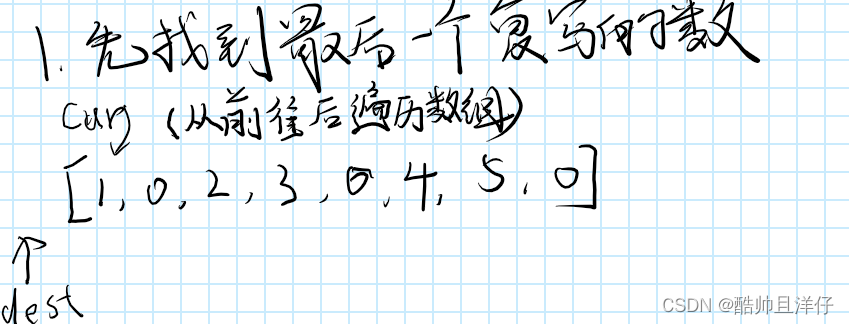 1. 先找到最后一个复写的数
cur (从前往后遍历数组)
[1, 0, 2, 3, 0, 4, 5, 0]
dest
CSDN @酷帅且洋仔